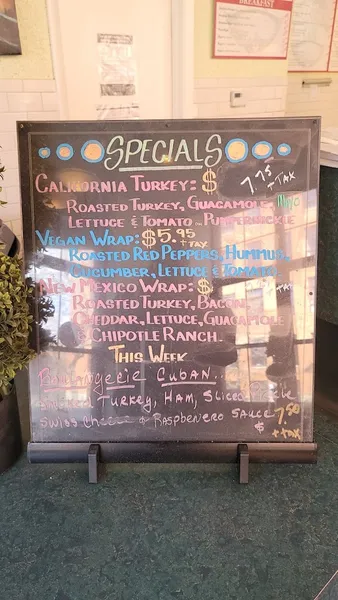 BREAKFAST
SPECIALS
CALIFORNIA TURKEY: $ 7.75 + TAX
ROASTED TURKEY, GUACAMOLE, MAYO
LETTUCE & TOMATO... PUMPERNICKLE
VEGAN WRAP: $5.95 + TAX
ROASTED RED PEPPERS, HUMMUS,
CUCUMBER, LETTUCE & TOMATO
NEW MEXICO WRAP: $ + TAX
ROASTED TURKEY, BACON,
CHEDDAR, LETTUCE, GUACAMOLE
& CHIPOTLE RANCH.
THIS WEEK
CUBAN...
TURKEY, HAM, SLICED
SWISS CHEESE & RASPBENERO SAUCE
$ 7.50
+ TAX